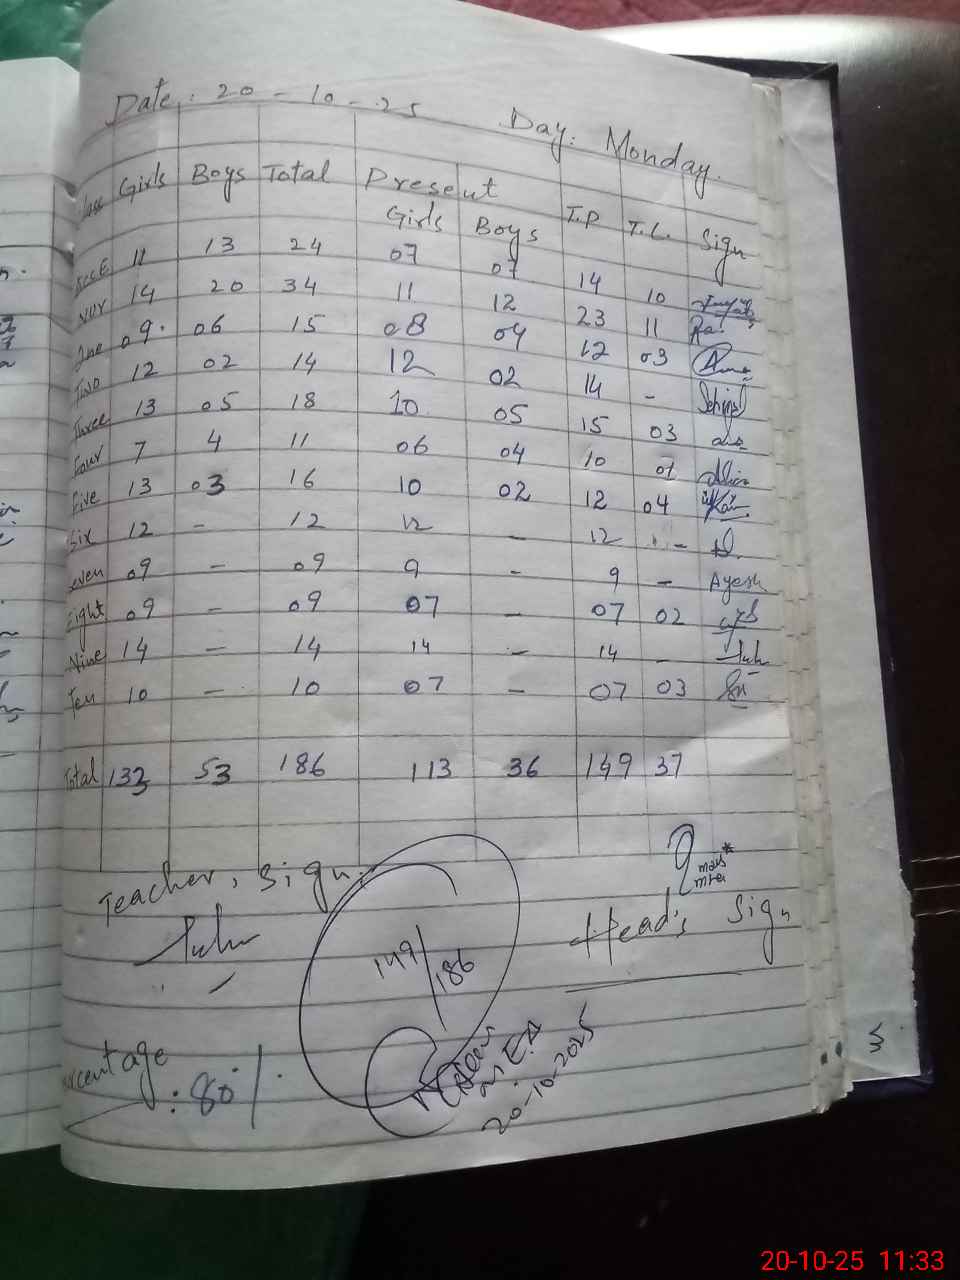 Date: 20 - 10 - 25 Day: Monday.
Class Girls Boys Total Present T.P T.L. Sign
Girls Boys
ECCE 11 13 24 07 07 14 10
Nur 14 20 34 11 12 23 11
One 09. 06 15 08 04 12 03
Two 12 02 14 12 02 14 -
Three 13 05 18 10 05 15 03
Four 7 4 11 06 04 10 01
Five 13 03 16 10 02 12 04
Six 12 - 12 12 - 12 -
Seven 09 - 09 9 - 9 - Ayesh
Eight 09 - 09 07 - 07 02
Nine 14 - 14 14 - 14 -
Ten 10 - 10 07 - 07 03
Total 133 53 186 113 36 149 37
Teacher, Sign.
Head's Sign
149/186
20-10-2025
Percentage
: 80%
20-10-25 11:33